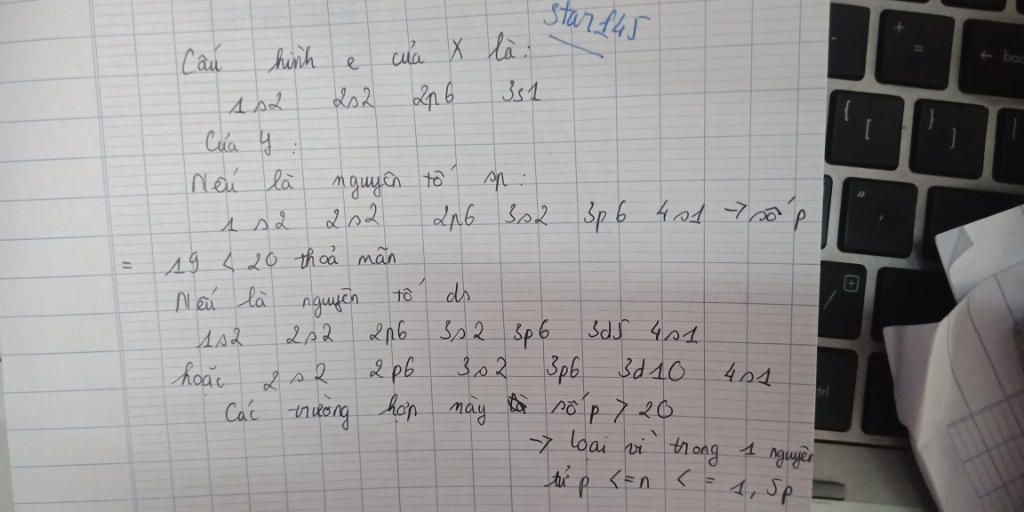 star145
Cấu hình e của X là:
1s2 2s2 2p6 3s1
Của Y:
Nếu là nguyên tố sp:
1s2 2s2 2p6 3s2 3p6 4s1 → số p
= 19 < 20 thoả mãn
Nếu là nguyên tố ds
1s2 2s2 2p6 3s2 3p6 3d5 4s1
hoặc 2s2 2p6 3s2 3p6 3d10 4s1
Các trường hợp này số p > 20
→ loại vì trong 1 nguyên
tử p <= n <= 1,5p
+
=
← bac
{
[
}
]
“
,
/
+
ctrl